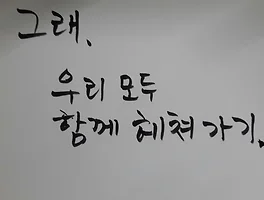 그래,
우리 모두
함께 헤쳐 가기.